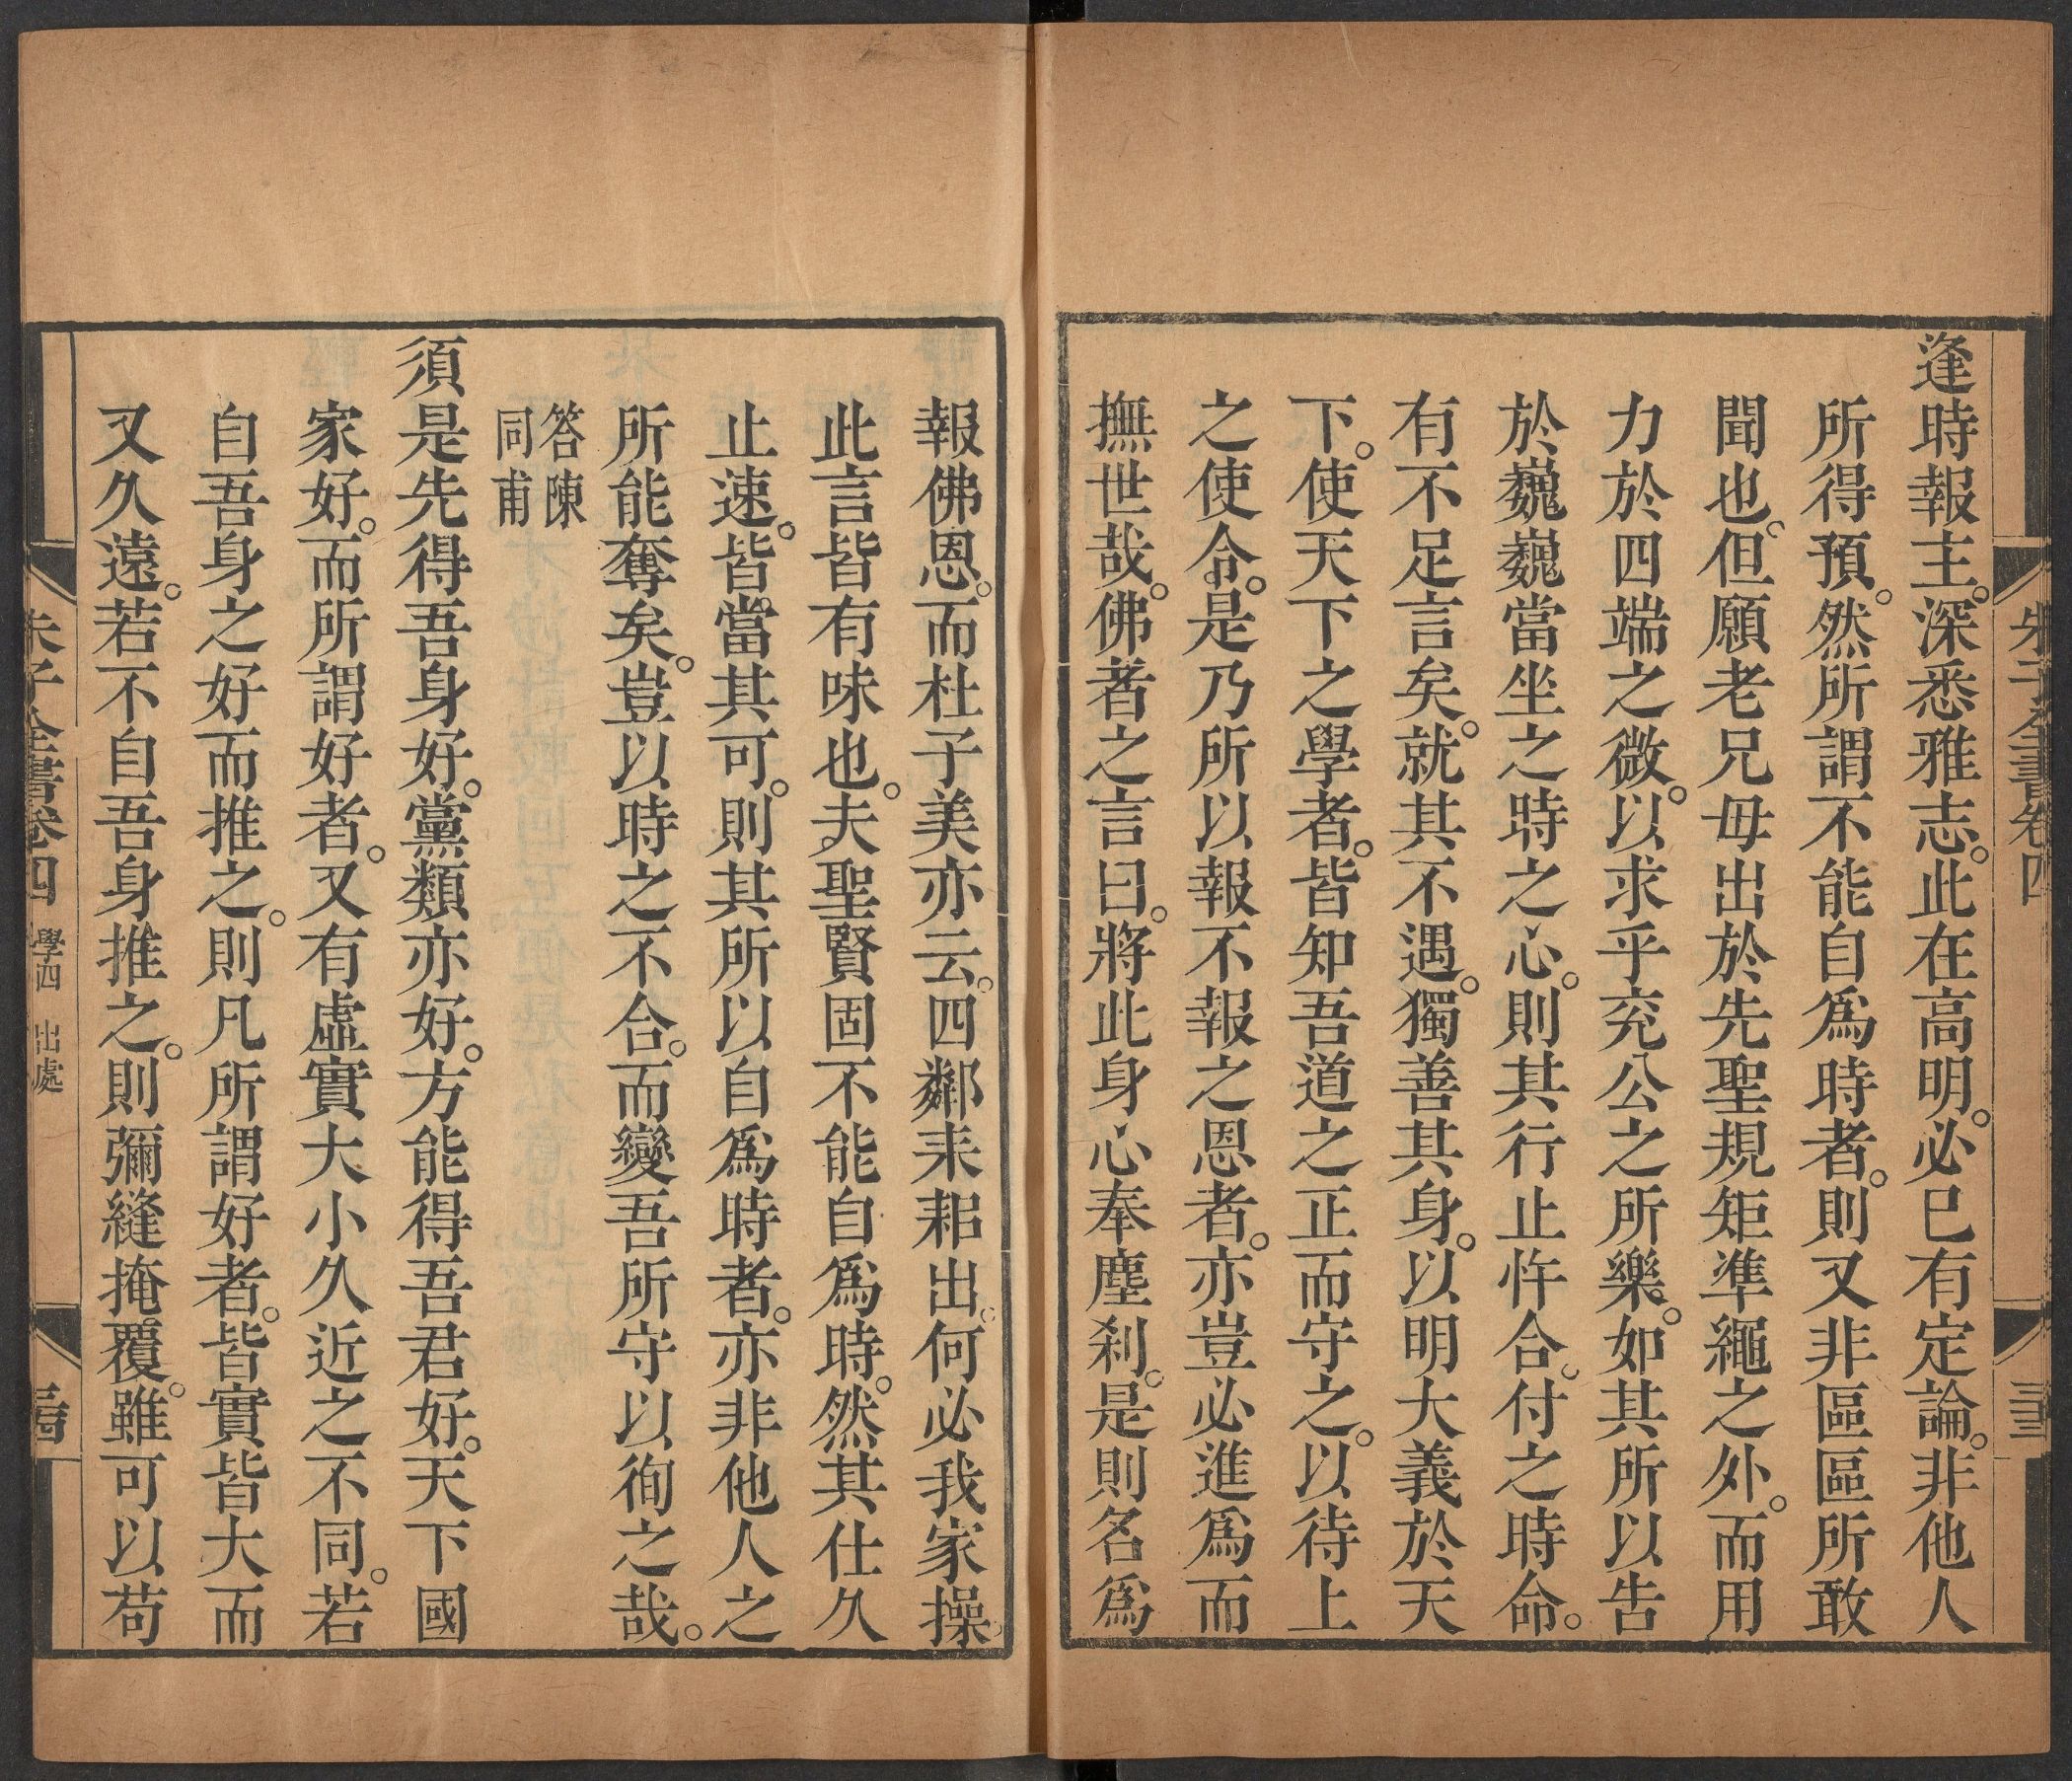 朱子全書卷四
三十三
逢時報主。深悉雅志。此在高明。必已有定論。非他人
所得預。然所謂不能自爲時者。則又非區區所敢
聞也。但願老兄毋出於先聖規矩準繩之外。而用
力於四端之微。以求乎兖公之所樂。如其所以告
於巍巍當坐之時之心。則其行止忤合。付之時命。
有不足言矣。就其不遇。獨善其身。以明大義於天
下。使天下之學者。皆知吾道之正而守之。以待上
之使令。是乃所以報不報之恩者。亦豈必進爲而
撫世哉。佛者之言曰。將此身心奉塵刹。是則名爲
報佛恩。而杜子美亦云。四鄰耒耜出。何必我家操。
此言皆有味也。夫聖賢固不能自爲時。然其仕久
止速。皆當其可。則其所以自爲時者。亦非他人之
所能奪矣。豈以時之不合。而變吾所守以徇之哉。
答陳
同甫
須是先得吾身好。黨類亦好。方能得吾君好。天下國
家好。而所謂好者。又有虛實大小久近之不同。若
自吾身之好而推之。則凡所謂好者。皆實皆大而
又久遠。若不自吾身推之。則彌縫掩覆。雖可以苟
朱子全書卷四 學四 出處